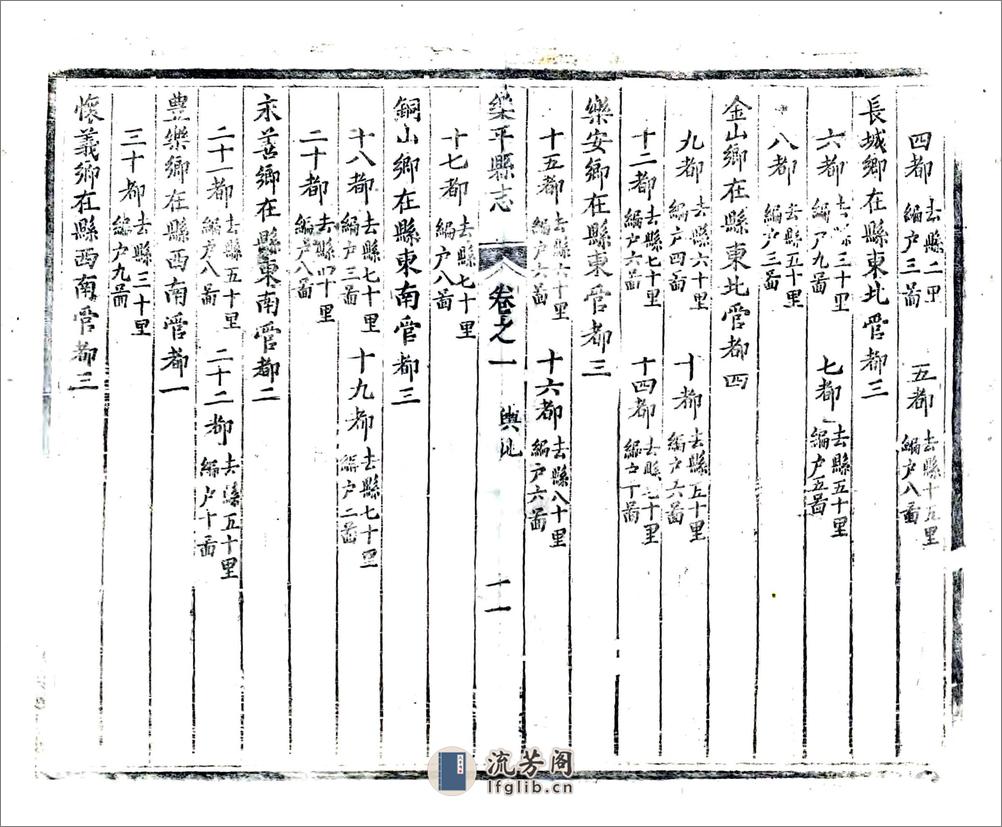 四都去縣二里編户三啚 五都去縣十五里編户八啚
長城鄉在縣東北管都三
六都去三十里編户九啚 七都去縣五十里編户五啚
八都去縣五十里編户三啚
金山鄉在縣東北管都四
九都去縣六十里編户四啚 十都去縣五十里編户六啚
十二都去縣七十里編户六啚 十四都去縣七十里編户十啚
樂安鄉在縣東北管都三
十五都去縣六十里編户六啚 十六都去縣八十里編户六啚
樂平縣志 卷之一 輿地 十一
十七都去縣七十里編户八啚
銅山鄉在縣東南管都三
十八都去縣七十里編户三啚 十九都去縣七十里編户二啚
二十都去縣四十里編户八啚
永善鄉在縣東南管都二
二十一都去縣五十里編户八啚 二十二都去縣五十里編户十啚
豊樂鄉在縣西南管都一
三十都去縣三十里編户九啚
懷義鄉在縣西南管都三
流芳阁
lfglib.cn